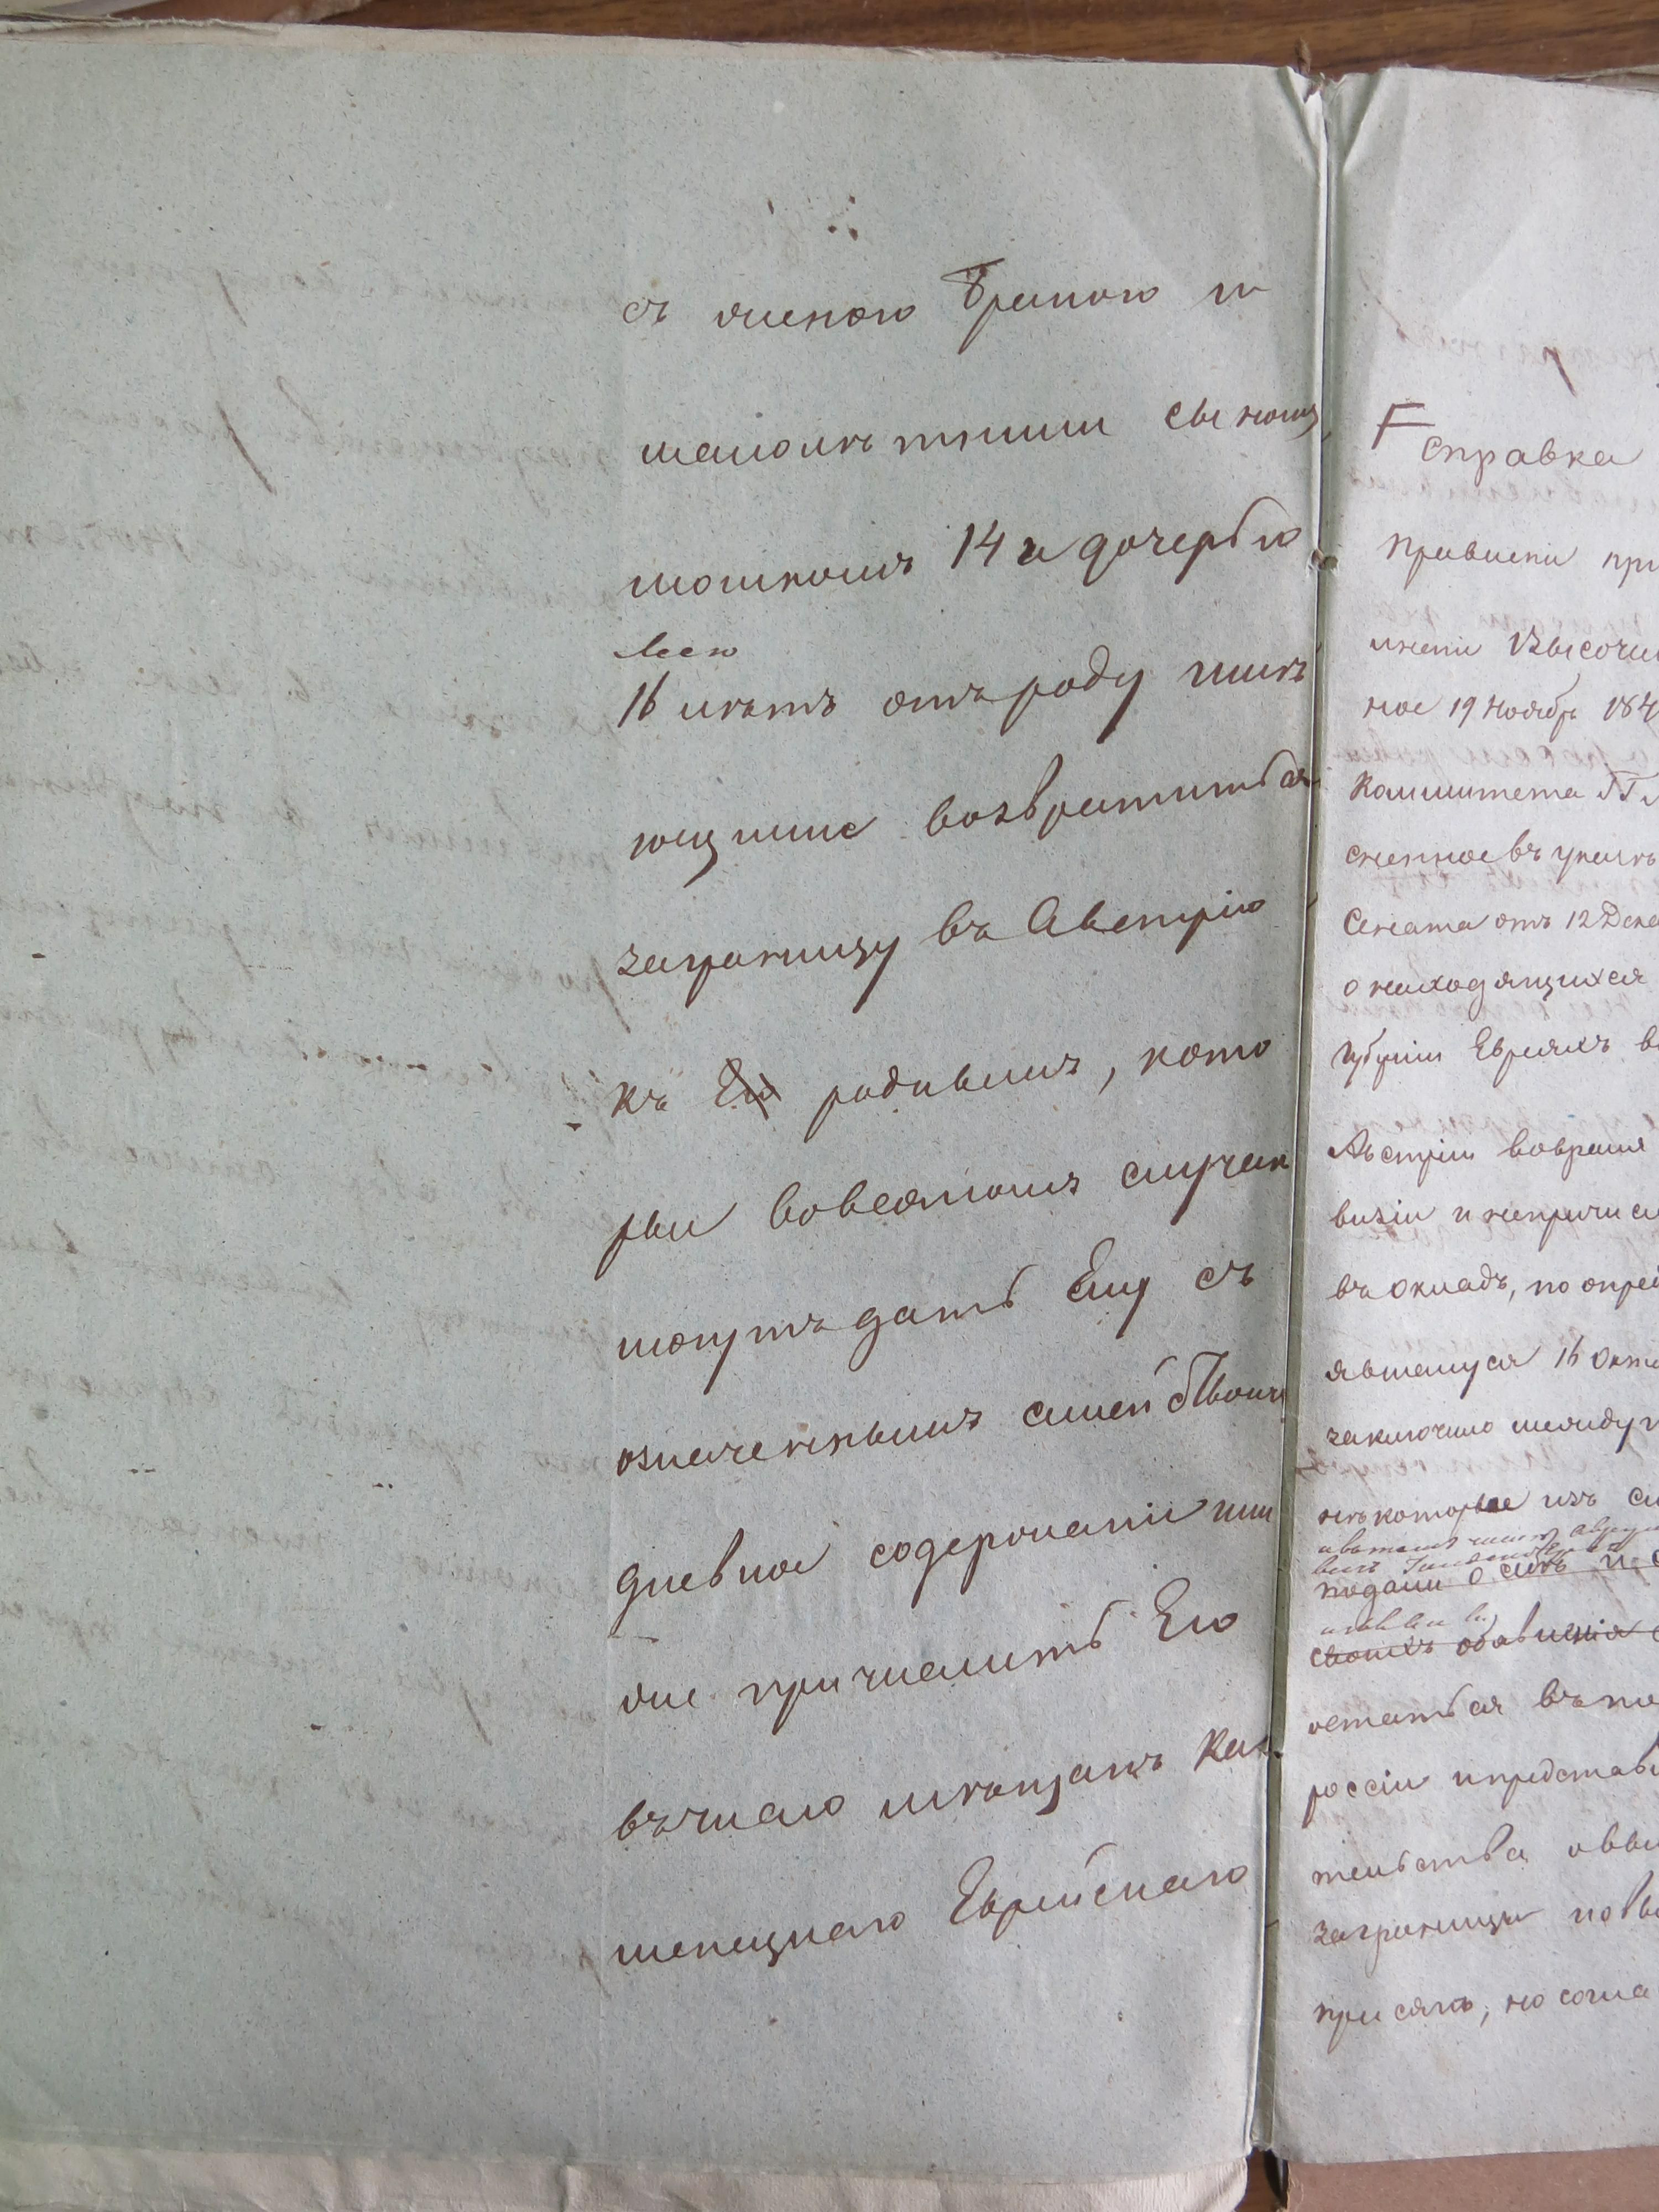 съ женою Брайною и
малолѣтними сыномъ
Мошкомъ 14 и дочерью
Леею
16 лѣтъ отъ роду жилъ
ющимъ возвратиться
заграницу въ Австрію
къ Ею роднымъ, кото
рыи вовсякомъ случаи
могутъ дать Ему съ
означеннымъ Семействомъ
дневное содержаніе или
же причислить Его
въ число мѣщанъ Ка
менецкаго Еврейскаго
Справка
Правленіи при
мѣнии Высочай
ное 19 Ноября 184
Коммитета
сненное въ указѣ
Сената отъ 12 Дека
о находящихся
губерніи Евреяхъ
Австріи вовремя
визіи и непричисл
въ окладъ, по опред
явшемуся 16 Октя
заключило между
нѣкоторые изъ
подали о семъ и
своихъ объявленія
остаться въ по
россіи и представи
тельства овы
заграницы
присягѣ, но согла